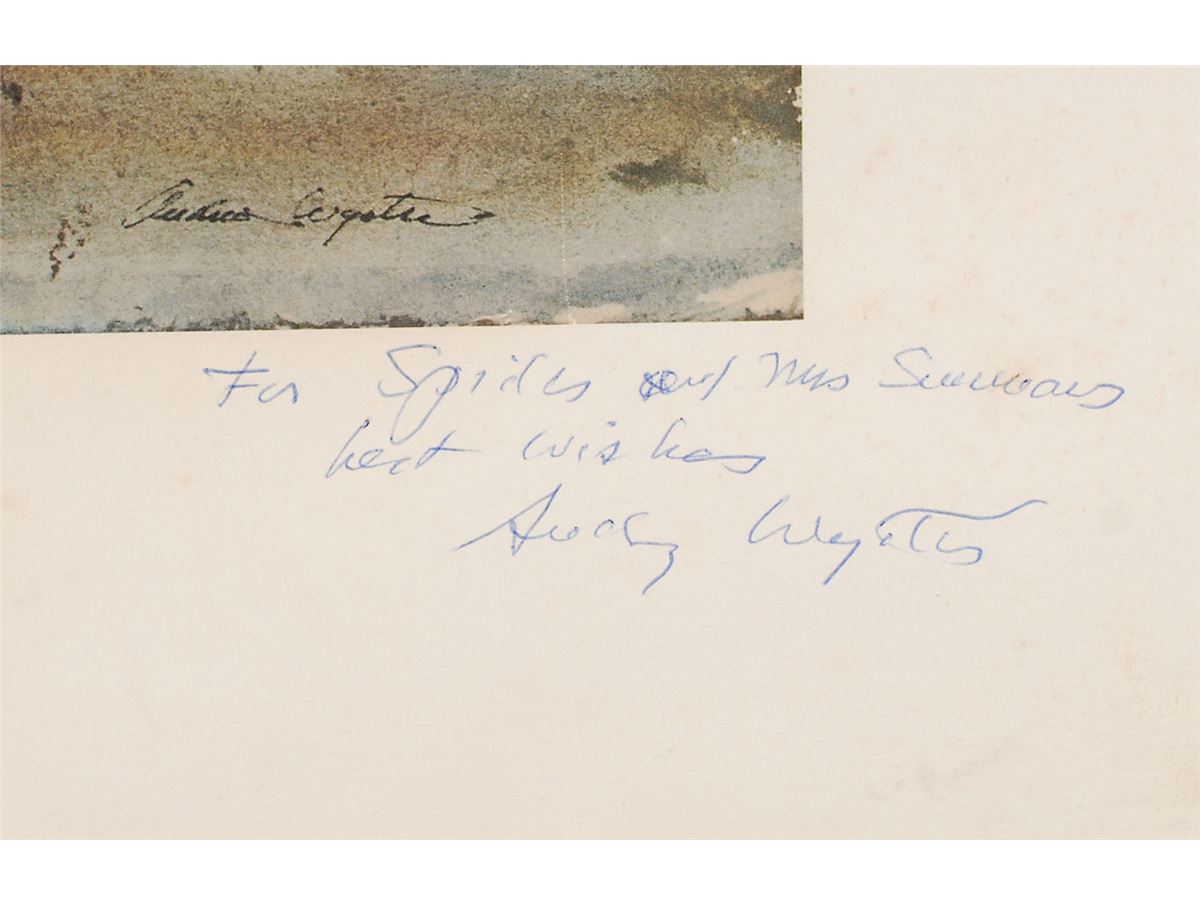 Andrew Wyeth
For Spider and Mrs Simmons
best wishes
Andy Wyeth